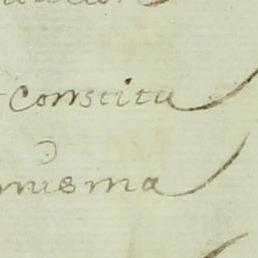 constitu
misma